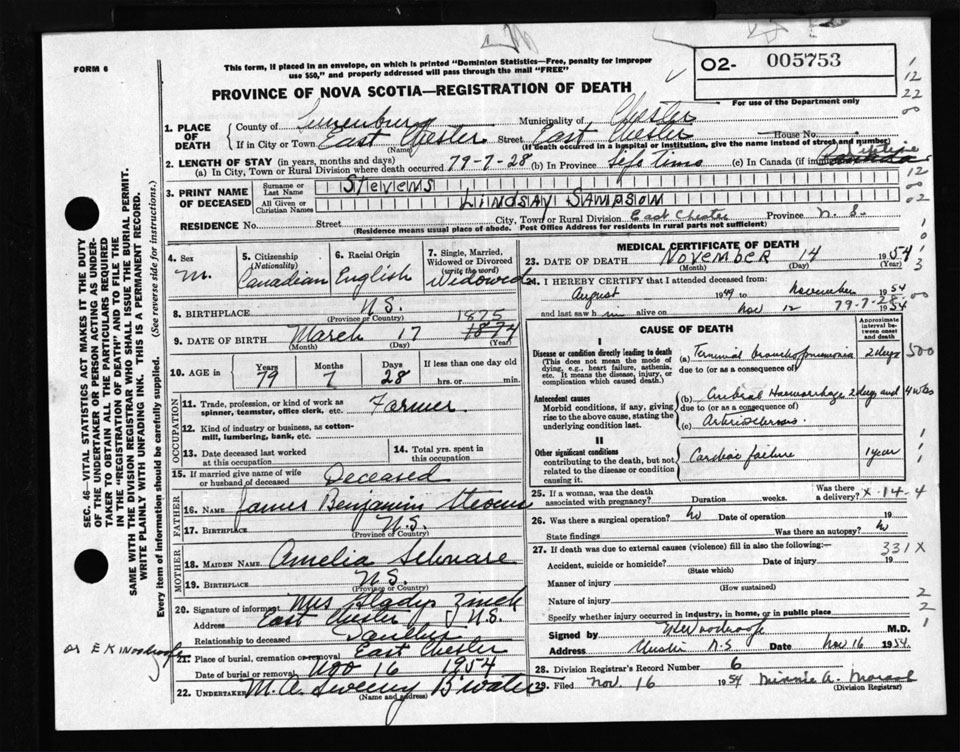 FORM 6
This form, if placed in an envelope, on which is printed "Dominion Statistics—Free, penalty for improper
use $50," and properly addressed will pass through the mail "FREE"
O2- 005753
For use of the Department only
PROVINCE OF NOVA SCOTIA—REGISTRATION OF DEATH
1. PLACE OF DEATH
County of Lunenburg Municipality of Chester
If in City or Town East Chester Street East Chester House No.
(Name) (If death occurred in a hospital or institution, give the name instead of street and number)
2. LENGTH OF STAY (in years, months and days)
(a) In City, Town or Rural Division where death occurred 79-7-28 (b) In Province life time (c) In Canada (if immigrant)
3. PRINT NAME OF DECEASED
Surname or Last Name Stevens
All Given or Christian Names LINDSAY SAMPSON
RESIDENCE No. Street City, Town or Rural Division East Chester Province N.S.
(Residence means usual place of abode. Post Office Address for residents in rural parts not sufficient)
4. Sex M.
5. Citizenship (Nationality) Canadian
6. Racial Origin English
7. Single, Married, Widowed or Divorced (write the word) Widowed
8. BIRTHPLACE N.S.
(Province or Country)
1875
9. DATE OF BIRTH March 17 1874
(Month) (Day) (Year)
10. AGE in Years 79 Months 7 Days 28 If less than one day old hrs. or min.
OCCUPATION
11. Trade, profession, or kind of work as spinner, teamster, office clerk, etc. Farmer
12. Kind of industry or business, as cotton-mill, lumbering, bank, etc.
13. Date deceased last worked at this occupation
14. Total yrs. spent in this occupation
15. If married give name of wife or husband of deceased Deceased
FATHER
16. NAME James Benjamin Stevens
17. BIRTHPLACE N.S.
(Province or Country)
MOTHER
18. MAIDEN NAME Amelia
19. BIRTHPLACE N.S.
(Province or Country)
20. Signature of informant Mrs Gladys Zinck
Address East Chester N.S.
Relationship to deceased Daughter
21. Place of burial, cremation or removal East Chester
Date of burial or removal Nov 16 1954
22. UNDERTAKER M. A. Sweeny B'water
(Name and address)
MEDICAL CERTIFICATE OF DEATH
23. DATE OF DEATH NOVEMBER 14 1954
(Month) (Day)
24. I HEREBY CERTIFY that I attended deceased from:
August 1949 to November 1954
and last saw h im alive on Nov 12 1954
79-7-28
CAUSE OF DEATH
Approximate interval between onset and death
I
Disease or condition directly leading to death
(This does not mean the mode of dying, e.g., heart failure, asthenia, etc. It means the disease, injury, or complication which caused death.)
(a) Terminal bronchopneumonia 2 days
due to (or as a consequence of)
Antecedent causes
Morbid conditions, if any, giving rise to the above cause, stating the underlying condition last.
(b) Cerebral Haemorrhage 2 days and 4 wks
due to (or as a consequence of)
(c) Arteriosclerosis
II
Other significant conditions
contributing to the death, but not related to the disease or condition causing it.
Cardiac failure 1 year
25. If a woman, was the death associated with pregnancy? Duration weeks. Was there a delivery? x-14-4
26. Was there a surgical operation? No Date of operation 19
State findings Was there an autopsy? No
27. If death was due to external causes (violence) fill in also the following:— 331X
Accident, suicide or homicide? Date of injury 19
(State which)
Manner of injury
(How sustained)
Nature of injury
Specify whether injury occurred in industry, in home, or in public place
Signed by M.D.
Address Chester N.S Date Nov 16 1954.
28. Division Registrar's Record Number 6
29. Filed Nov. 16 1954 Minnie A.
(Division Registrar)
SEC. 46—VITAL STATISTICS ACT MAKES IT THE DUTY
OF THE UNDERTAKER OR PERSON ACTING AS UNDER-
TAKER TO OBTAIN ALL THE PARTICULARS REQUIRED
IN THE "REGISTRATION OF DEATH" AND TO FILE THE
SAME WITH THE DIVISION REGISTRAR WHO SHALL ISSUE THE BURIAL PERMIT.
WRITE PLAINLY WITH UNFADING INK. THIS IS A PERMANENT RECORD.
Every item of information should be carefully supplied. (See reverse side for instructions.)
500